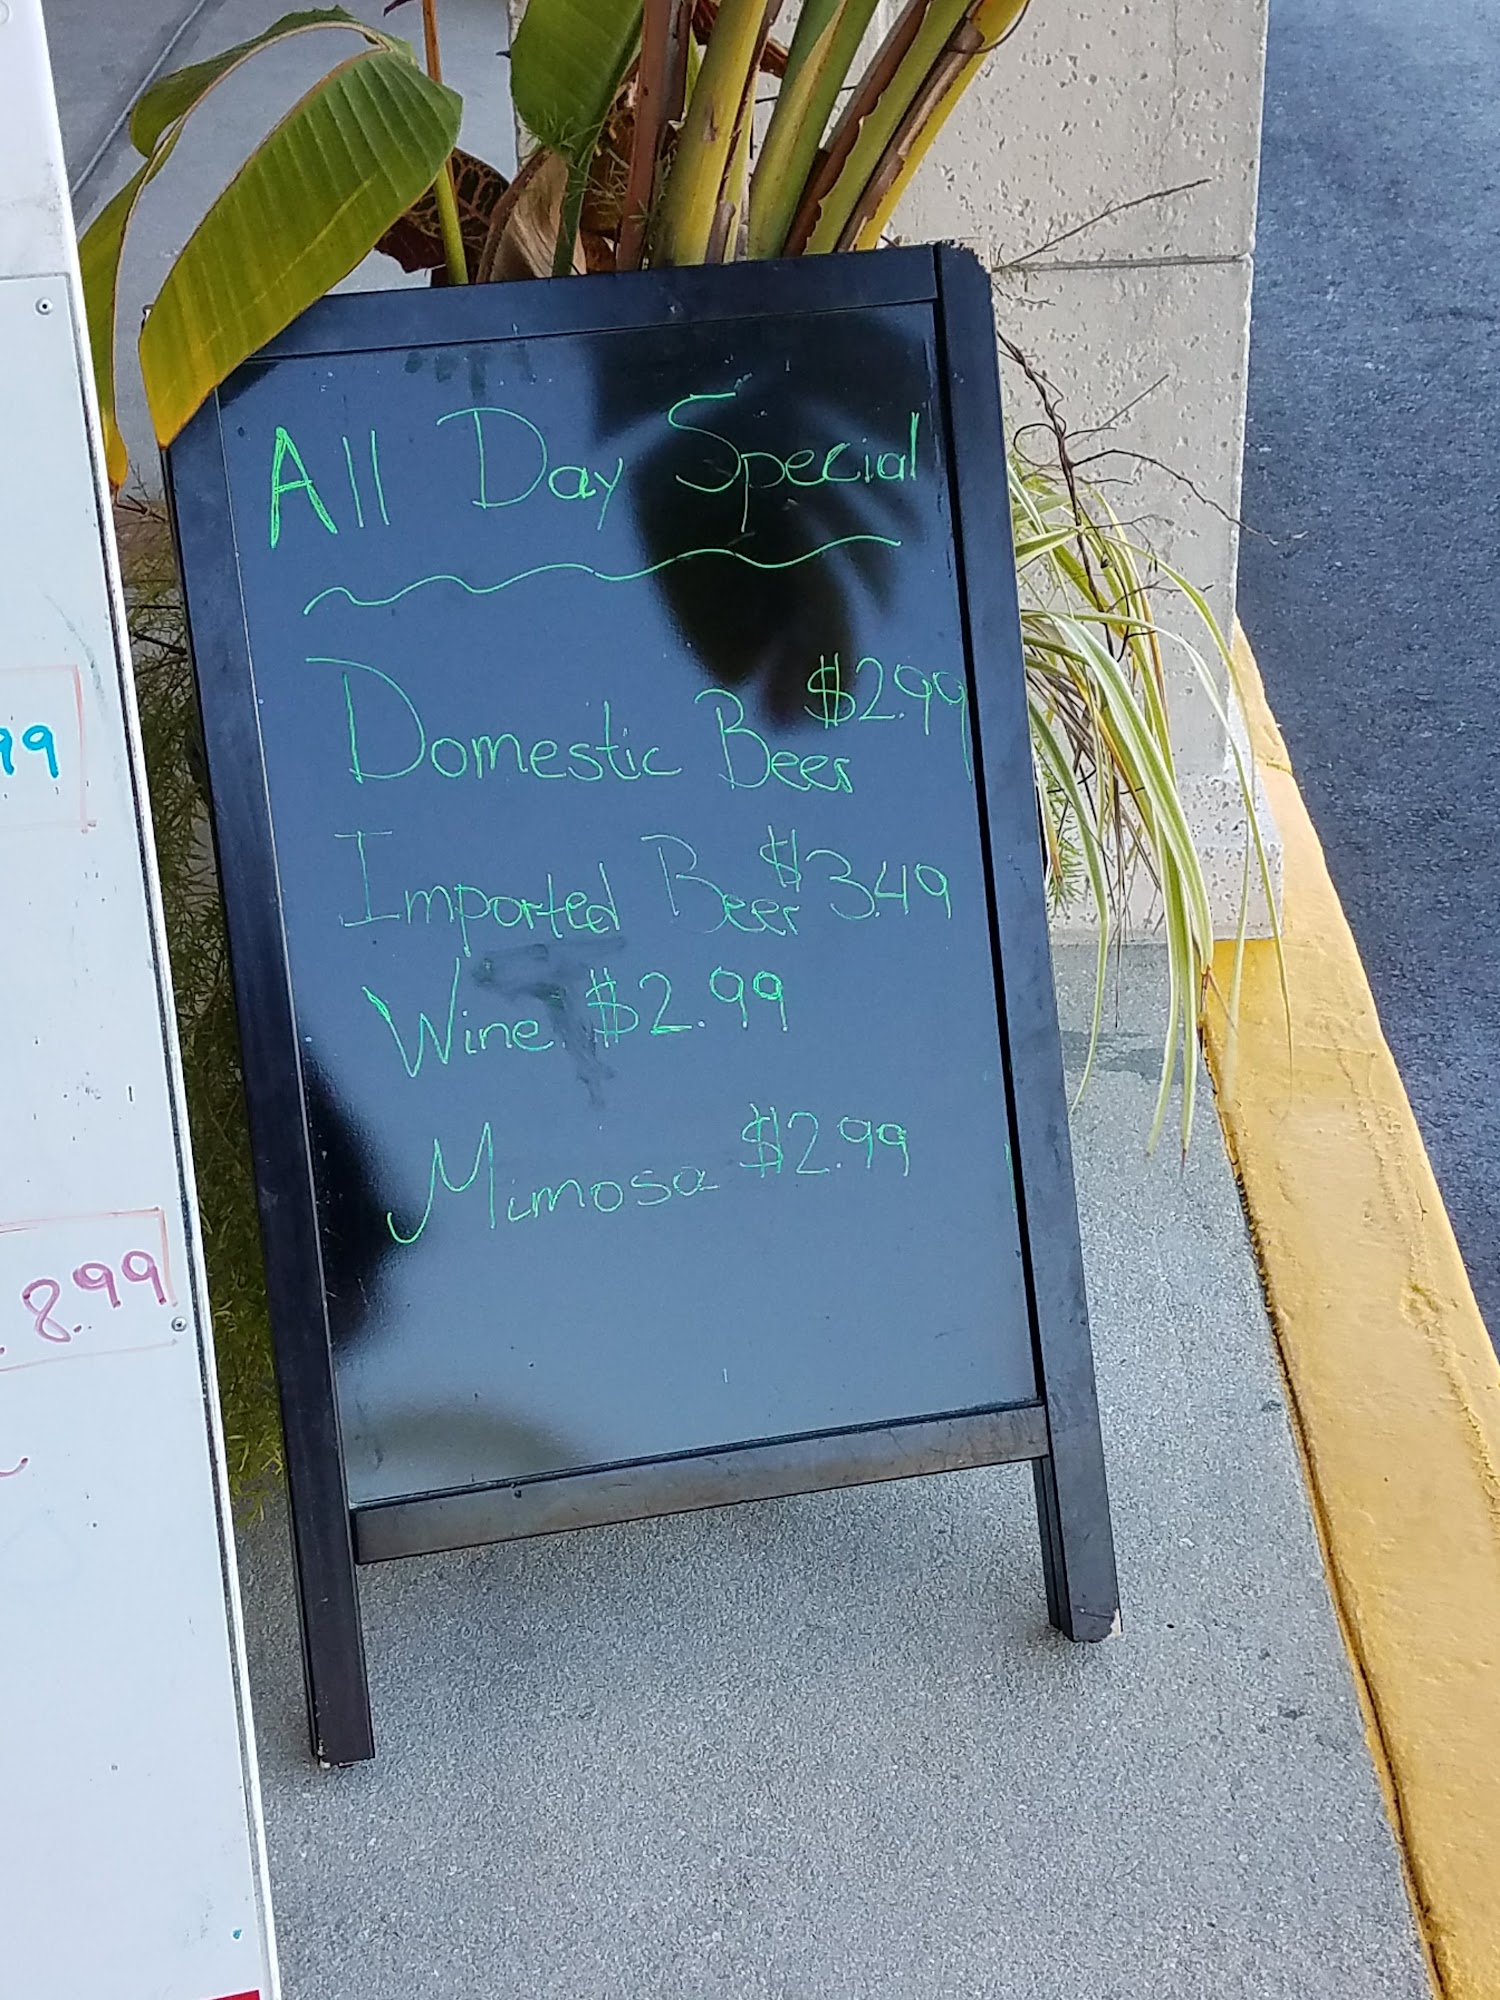 All Day Special
Domestic Beer $2.99
Imported Beer $3.49
Wine $2.99
Mimosa $2.99
99
8.99